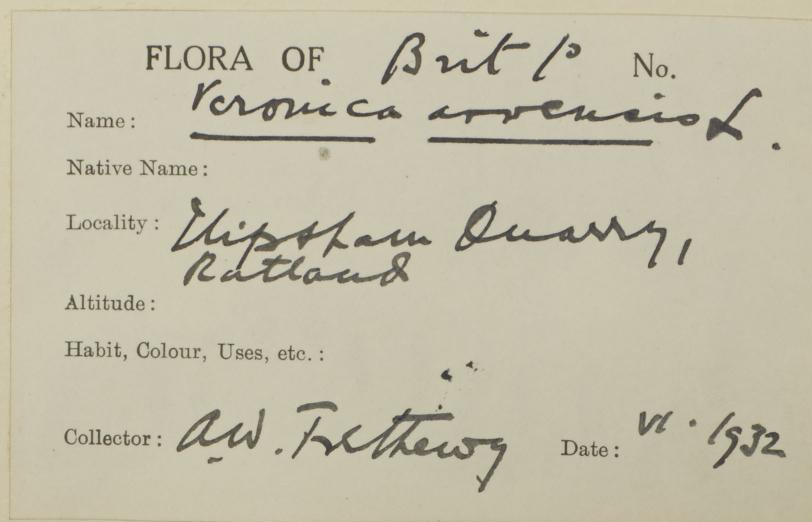 FLORA OF Brit No.
Name: Veronica arvensis L.
Native Name:
Locality: Clipsham Quarry,
Rutland
Altitude:
Habit, Colour, Uses, etc.:
Collector: A.W. Trethewy Date: VI. 1932